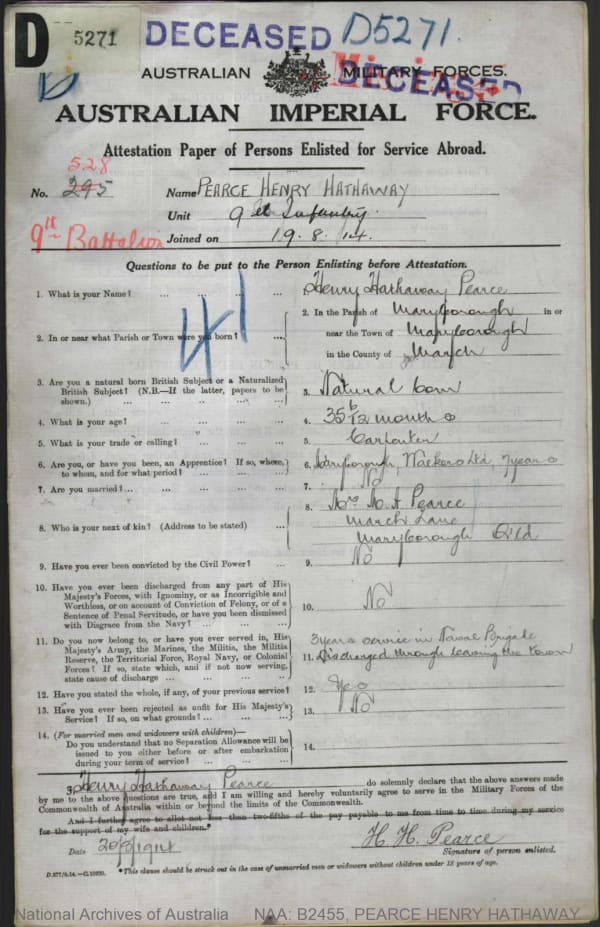 D 5271 DECEASED D5271.
AUSTRALIAN MILITARY FORCES.
DECEASED
AUSTRALIAN IMPERIAL FORCE.
Attestation Paper of Persons Enlisted for Service Abroad.
528
No. 295 Name PEARCE HENRY HATHAWAY
Unit 9th Infantry.
9th Battalion Joined on 19.8.14.
Questions to be put to the Person Enlisting before Attestation.
41
1. What is your Name? ... Henry Hathaway Pearce
2. In or near what Parish or Town were you born? ... 2. In the Parish of Maryborough in or
near the Town of Maryborough
in the County of March
3. Are you a natural born British Subject or a Naturalized
British Subject? (N.B.—If the latter, papers to be
shown.) 3. Natural born
4. What is your age? 4. 35 6/12 months
5. What is your trade or calling? 5. Carpenter
6. Are you, or have you been, an Apprentice? If so, where,
to whom, and for what period? 6. Maryborough, Walkers Ltd, 7 years
7. Are you married? ... 7. No
8. Who is your next of kin? (Address to be stated) ... 8. Mrs Pearce
March Lane
Maryborough Qld
9. Have you ever been convicted by the Civil Power? ... 9. No
10. Have you ever been discharged from any part of His
Majesty's Forces, with Ignominy, or as Incorrigible and
Worthless, or on account of Conviction of Felony, or of a
Sentence of Penal Servitude, or have you been dismissed
with Disgrace from the Navy? ... 10. No
11. Do you now belong to, or have you ever served in, His
Majesty's Army, the Marines, the Militia, the Militia
Reserve, the Territorial Force, Royal Navy, or Colonial
Forces? If so, state which, and if not now serving,
state cause of discharge ... 11. 3 years service in Naval Brigade
Discharged through leaving the town
12. Have you stated the whole, if any, of your previous service? 12. Yes
13. Have you ever been rejected as unfit for His Majesty's
Service? If so, on what grounds? ... 13. No
14. (For married men and widowers with children)—
Do you understand that no Separation Allowance will be
issued to you either before or after embarkation
during your term of service? ... 14.
I, Henry Hathaway Pearce do solemnly declare that the above answers made
by me to the above questions are true, and I am willing and hereby voluntarily agree to serve in the Military Forces of the
Commonwealth of Australia within or beyond the limits of the Commonwealth.
And I further agree to allot not less than two-fifths of the pay payable to me from time to time during my service
for the support of my wife and children.*
H. H. Pearce
Date 20/8/1914 Signature of person enlisted.
*This clause should be struck out in the case of unmarried men or widowers without children under 18 years of age.
National Archives of Australia NAA: B2455, PEARCE HENRY HATHAWAY